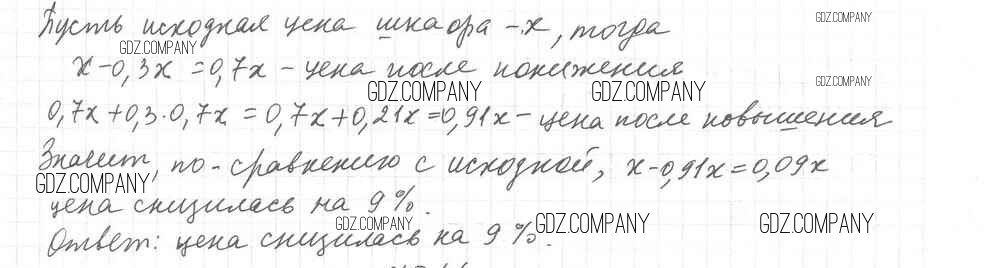 Пусть исходная цена шкафа – x, тогда
GDZ.COMPANY
GDZ.COMPANY
x - 0,3x = 0,7x – цена после понижения
GDZ.COMPANY
GDZ.COMPANY
GDZ.COMPANY
0,7x + 0,3·0,7x = 0,7x + 0,21x = 0,91x – цена после повышения
Значит, по-сравнению с исходной, x - 0,91x = 0,09x
GDZ.COMPANY
цена снизилась на 9 %.
GDZ.COMPANY
GDZ.COMPANY
GDZ.COMPANY
Ответ: цена снизилась на 9 %.